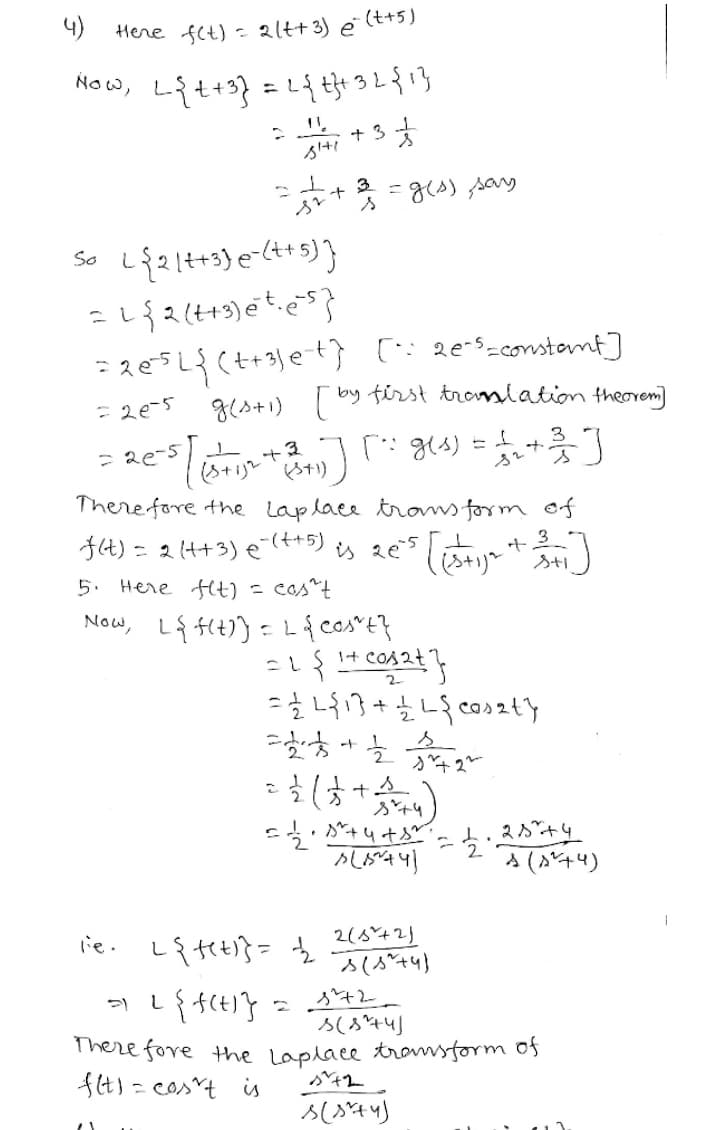 4) Here f(t) = 2(t+3) e^-(t+5)
Now, L{t+3} = L{t}+3L{1}
= 1!/s^1+1 + 3 1/s
= 1/s² + 3/s = g(s) say
So L{2(t+3)e^-(t+5)}
= L{2(t+3)e^-t.e^-5}
= 2e^-5 L{(t+3)e^-t} [∵ 2e^-5=constant]
= 2e^-5 g(s+1) [by first translation theorem]
= 2e^-5 [1/(s+1)² + 3/(s+1)] [∵ g(s) = 1/s² + 3/s]
Therefore the Laplace transform of
f(t) = 2(t+3) e^-(t+5) is 2e^-5 [1/(s+1)² + 3/s+1]
5. Here f(t) = cos²t
Now, L{f(t)} = L{cos²t}
= L{1+cos2t/2}
= 1/2 L{1} + 1/2 L{cos2t}
= 1/2·1/s + 1/2 s/s²+2²
= 1/2 (1/s + s/s²+4)
= 1/2 · s²+4+s²/s(s²+4) = 1/2 · 2s²+4/s(s²+4)
i.e. L{f(t)} = 1/2 2(s²+2)/s(s²+4)
⇒ L{f(t)} = s²+2/s(s²+4)
Therefore the Laplace transform of
f(t) = cos²t is s²+2/s(s²+4)